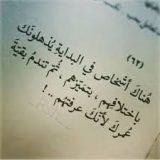 (٦٢)
هُناكَ أشخاص في البداية يُذهلونَكَ
بإختلافهم ، بتميّزهم ، ثُم تندمُ بقيّة
عُمركَ لأنّكَ عرفتهُم ..!